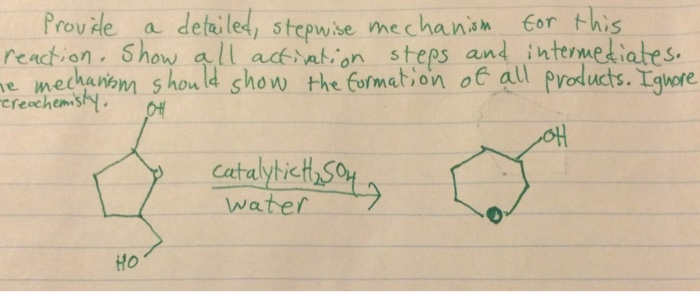 Provide a detailed, stepwise mechanism for this
reaction. Show all activation steps and intermediates.
he mechanism should show the formation of all products. Ignore
tereochemisty.
OH
O
HO
catalytic H₂SO₄
water
OH
O